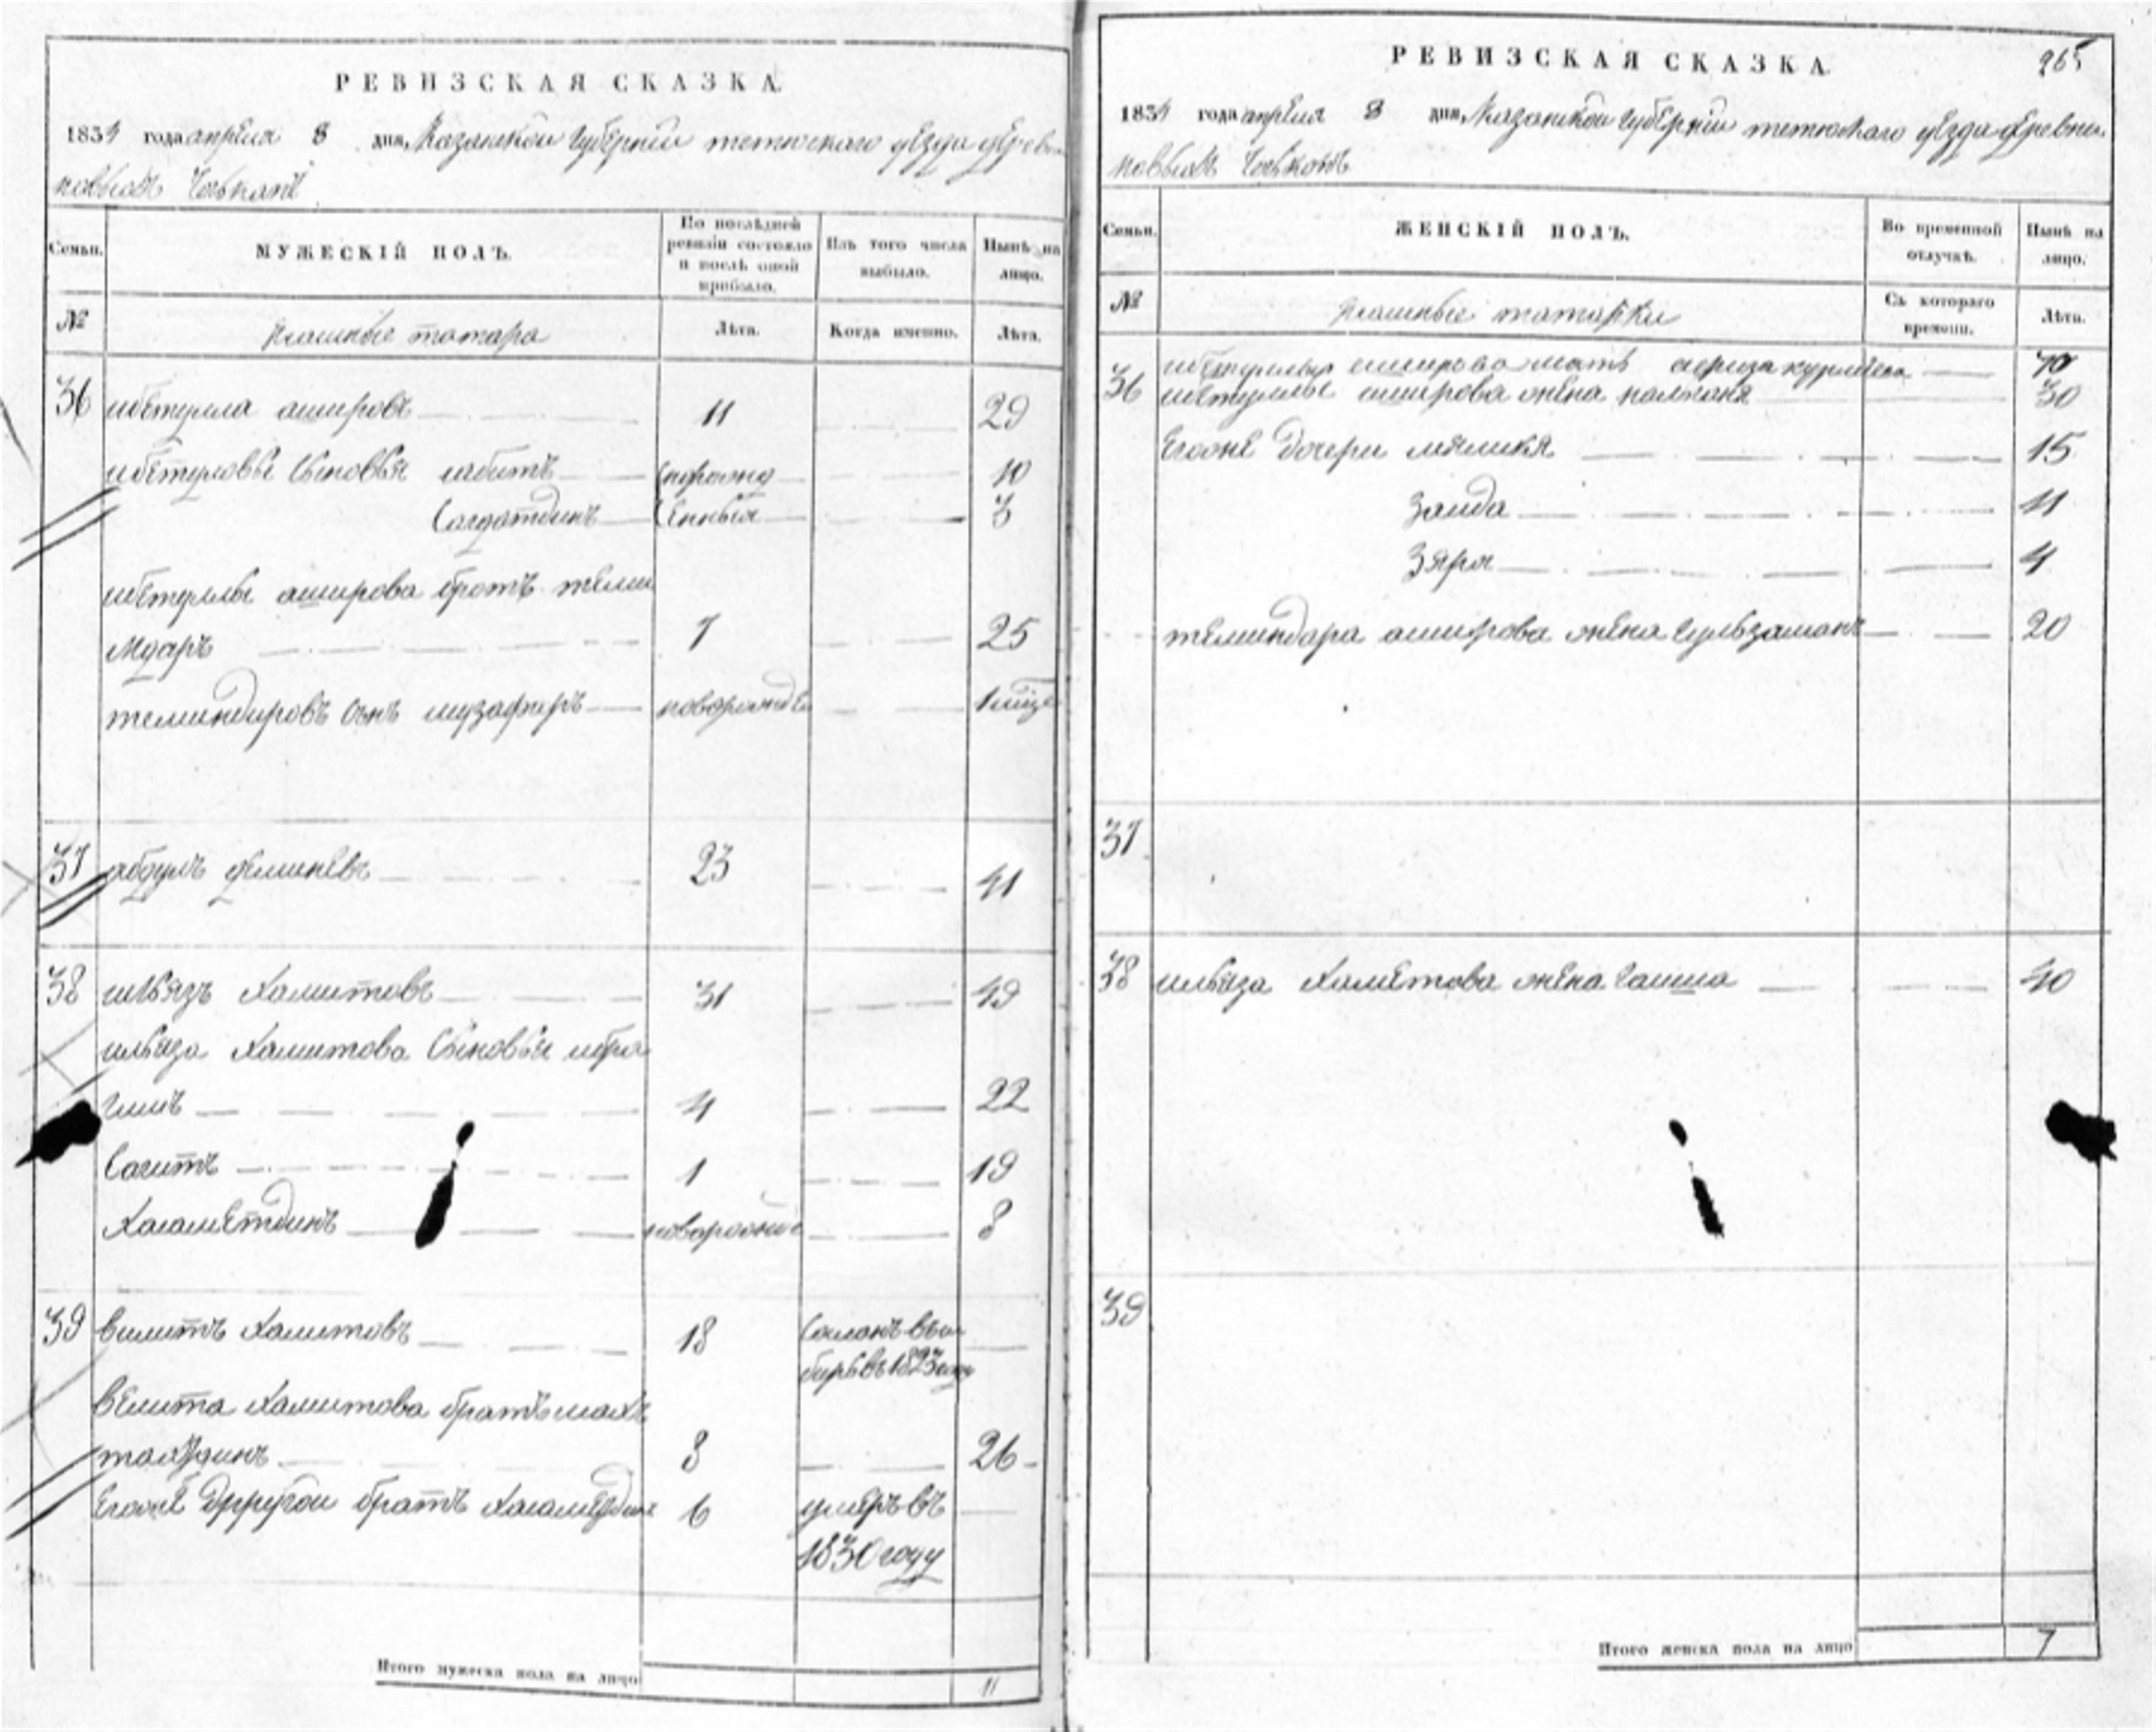 РЕВИЗСКАЯ СКАЗКА.
1834 года апреля 8 дня, Казанской губернии тетюскаго уезда деревни
новыхъ
Семьи.
МУЖЕСКІЙ ПОЛЪ.
По послѣдней ревизіи состояло и послѣ оной прибыло.
Изъ того числа выбыло.
Нынѣ на лицо.
№
ясашные татара
Лѣта.
Когда именно.
Лѣта.
36 ибетулла ашировъ 11 29
ибетуловы сыновья сабитъ 10
Сагдатдинъ 3
ибетуллы аширова братъ темин
мдаръ 7 25
теминдировъ сынъ музафаръ новорожде 1
37 абдулъ 23 41
38 ильязъ Хамитовъ 31 49
ильяза Хамитова Сыновья ибра
гимъ 4 22
Сагитъ 1 19
Хасаметдинъ новорожде 8
39 велитъ Хамитовъ 18 Сосланъ в Си
бирь въ 1823 году
велита Хамитова братъ
8 26
Егоже другой братъ 6 умеръ въ
1830 году
Итого мужеска пола на лицо 11
РЕВИЗСКАЯ СКАЗКА.
265
1834 года апреля 8 дня, Казанской губернии тетюскаго уезда деревни
новыхъ
Семьи.
ЖЕНСКІЙ ПОЛЪ.
Во временной отлучкѣ.
Нынѣ на лицо.
№
ясашные татарки
Съ котораго времени.
Лѣта.
36 ибетуллы аширова мать 70
ибетуллы аширова жена 30
Егоже дочери 15
Заида 11
Зяра 4
теминдара аширова жена гульзаманъ 20
37
38 ильяза Хамитова жена гаиша 40
39
Итого женска пола на лицо 7